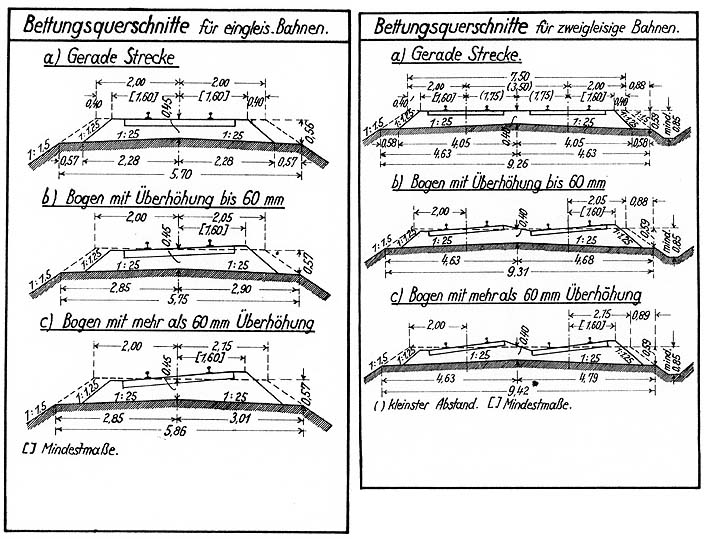 Bettungsquerschnitte für eingleis. Bahnen.
a) Gerade Strecke
2,00 2,00
0,40 [1,60] 0,45 [1,60] 0,40
1:1,5 1:1,25 1:25 1:25 0,56
0,57 2,28 2,28 0,57
5,70
b) Bogen mit Überhöhung bis 60 mm
2,00 2,05
[1,60]
1:1,5 1:1,25 0,45 1:25 1:25 0,57
2,85 2,90
5,75
c) Bogen mit mehr als 60 mm Überhöhung
2,00 2,75
[1,60]
1:1,5 1:1,25 0,45 1:25 1:25 0,57
2,85 3,01
5,86
[] Mindestmaße.
Bettungsquerschnitte für zweigleisige Bahnen.
a) Gerade Strecke.
7,50
2,00 (3,50) 2,00 0,88
0,40 [1,60] (1,75) (1,75) [1,60] 0,40
1:1,5 1:1,25 1:25 0,40 1:25 1:1,25 1:1,5 0,59 mind. 0,85
0,58 4,05 4,05 0,58
4,63 4,63
9,26
b) Bogen mit Überhöhung bis 60 mm
2,05 0,88
2,00 0,40 [1,60]
1:1,5 1:1,25 1:25 1:25 1:1,25 0,59 mind. 0,85
4,63 4,68
9,31
c) Bogen mit mehr als 60 mm Überhöhung
2,75 0,89
2,00 0,40 [1,60]
1:1,5 1:1,25 1:25 1:25 1:1,25 0,59 mind. 0,85
4,63 4,79
9,42
() kleinster Abstand. [] Mindestmaße.